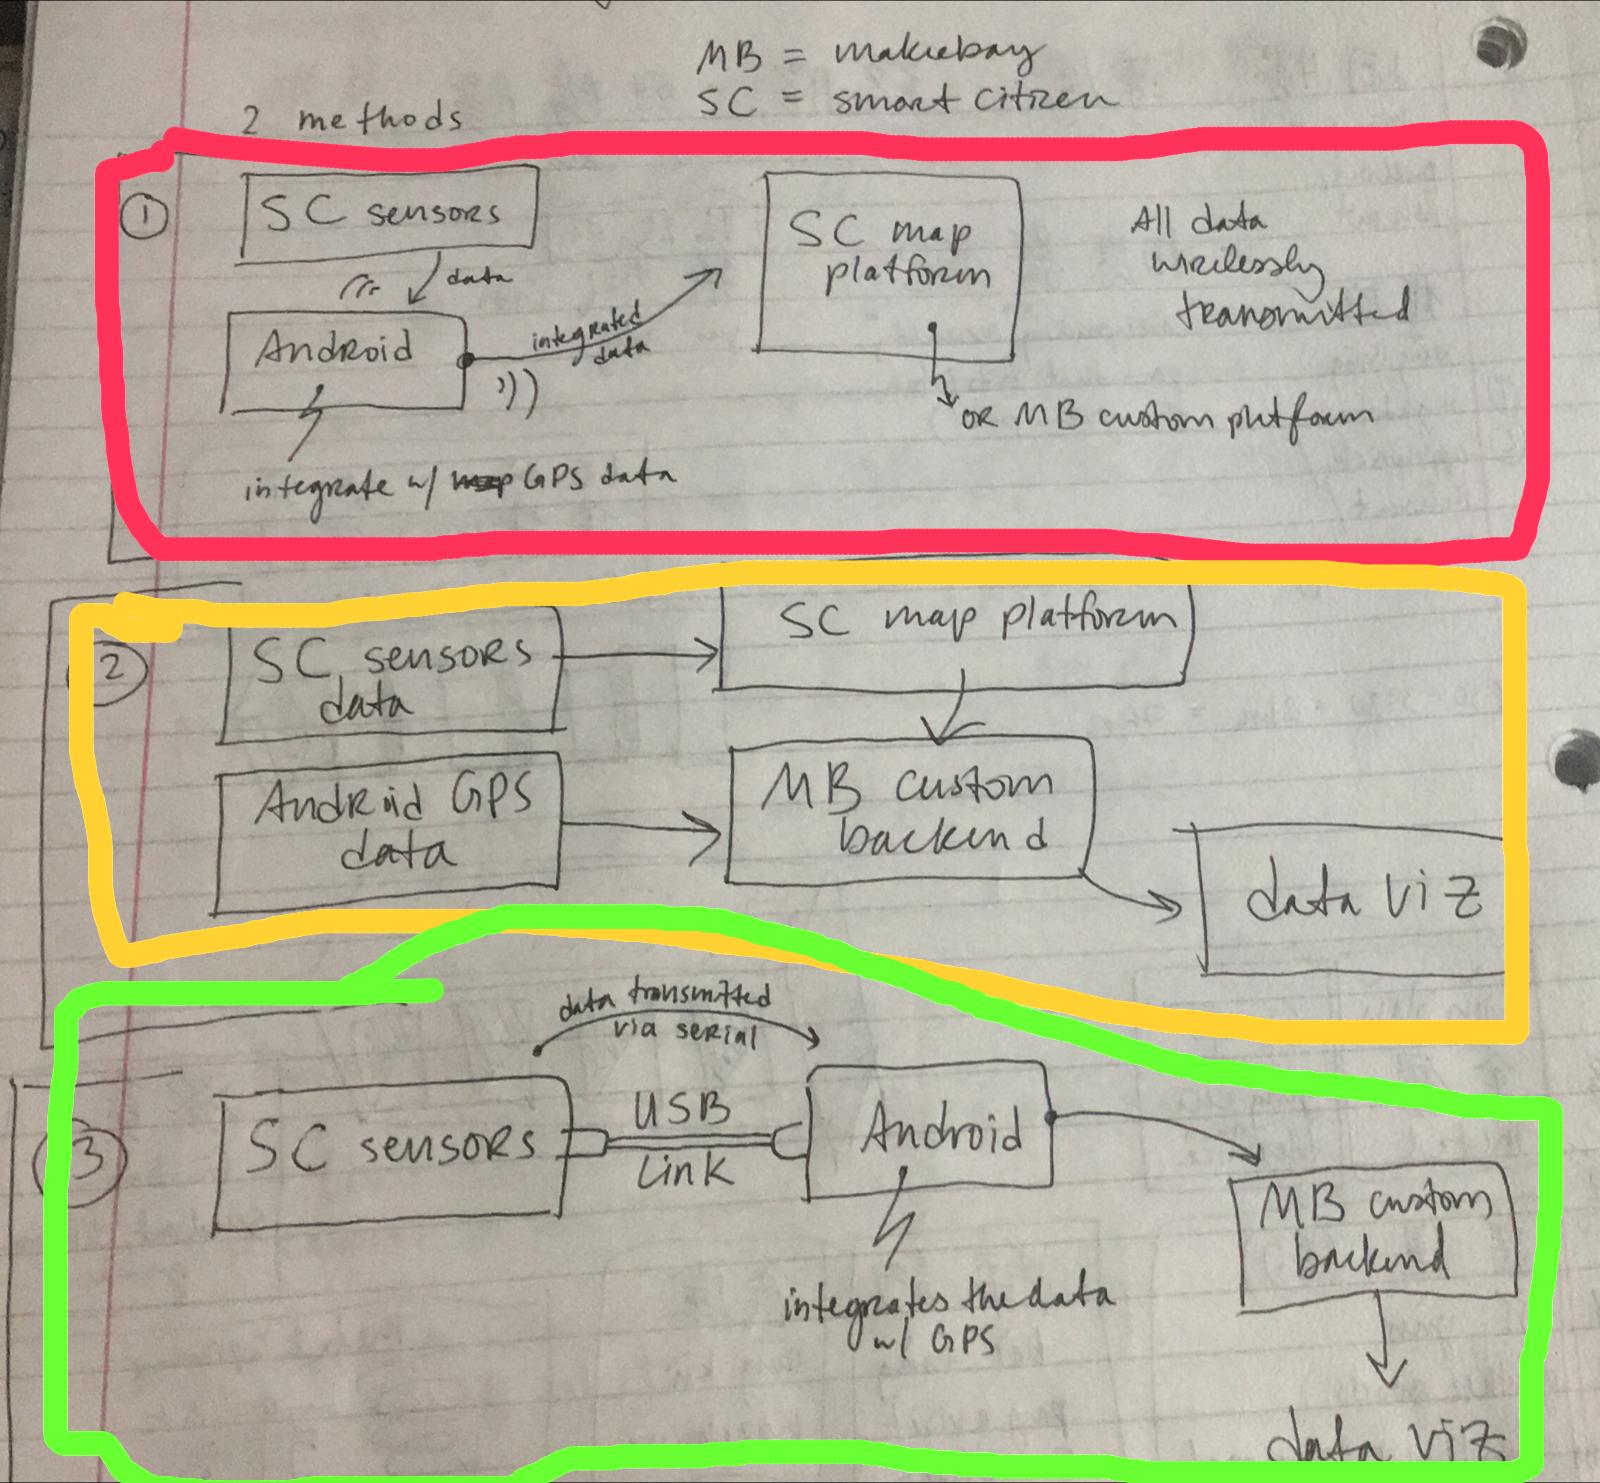 MB = makerbay
SC = smart citizen
2 methods
1
SC sensors
data
Android
integrated
data
integrate w/ GPS data
SC map
platform
or MB custom platform
All data
wirelessly
transmitted
2
SC sensors
data
SC map platform
Android GPS
data
MB custom
backend
data viz
data transmitted
via serial
3
SC sensors
USB
Link
Android
integrates the data
w/ GPS
MB custom
backend
data viz